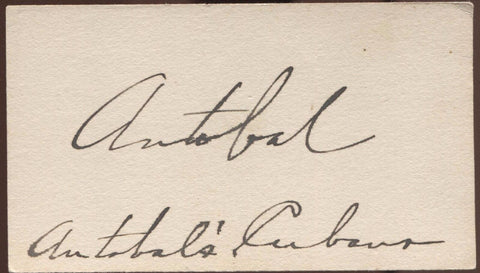 Antobal
Antobal's Cubans